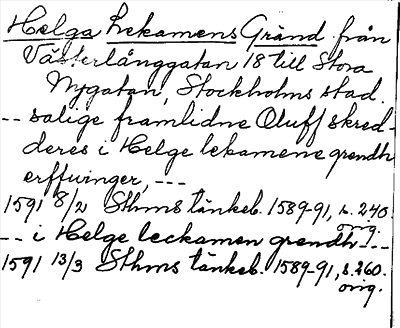 Helga Lekamens Gränd från
Västerlånggatan 18 till Stora
Nygatan, Stockholms stad.
-- salige framlidne Oluff skred-
deres i Helge lekamens grendh
erffuinger, ---
1591 8/2 Sthms tänkeb. 1589-91, s. 240.
orig.
-- i Helge leckamen grendh --
1591 13/3 Sthms tänkeb. 1589-91, s. 260.
orig.